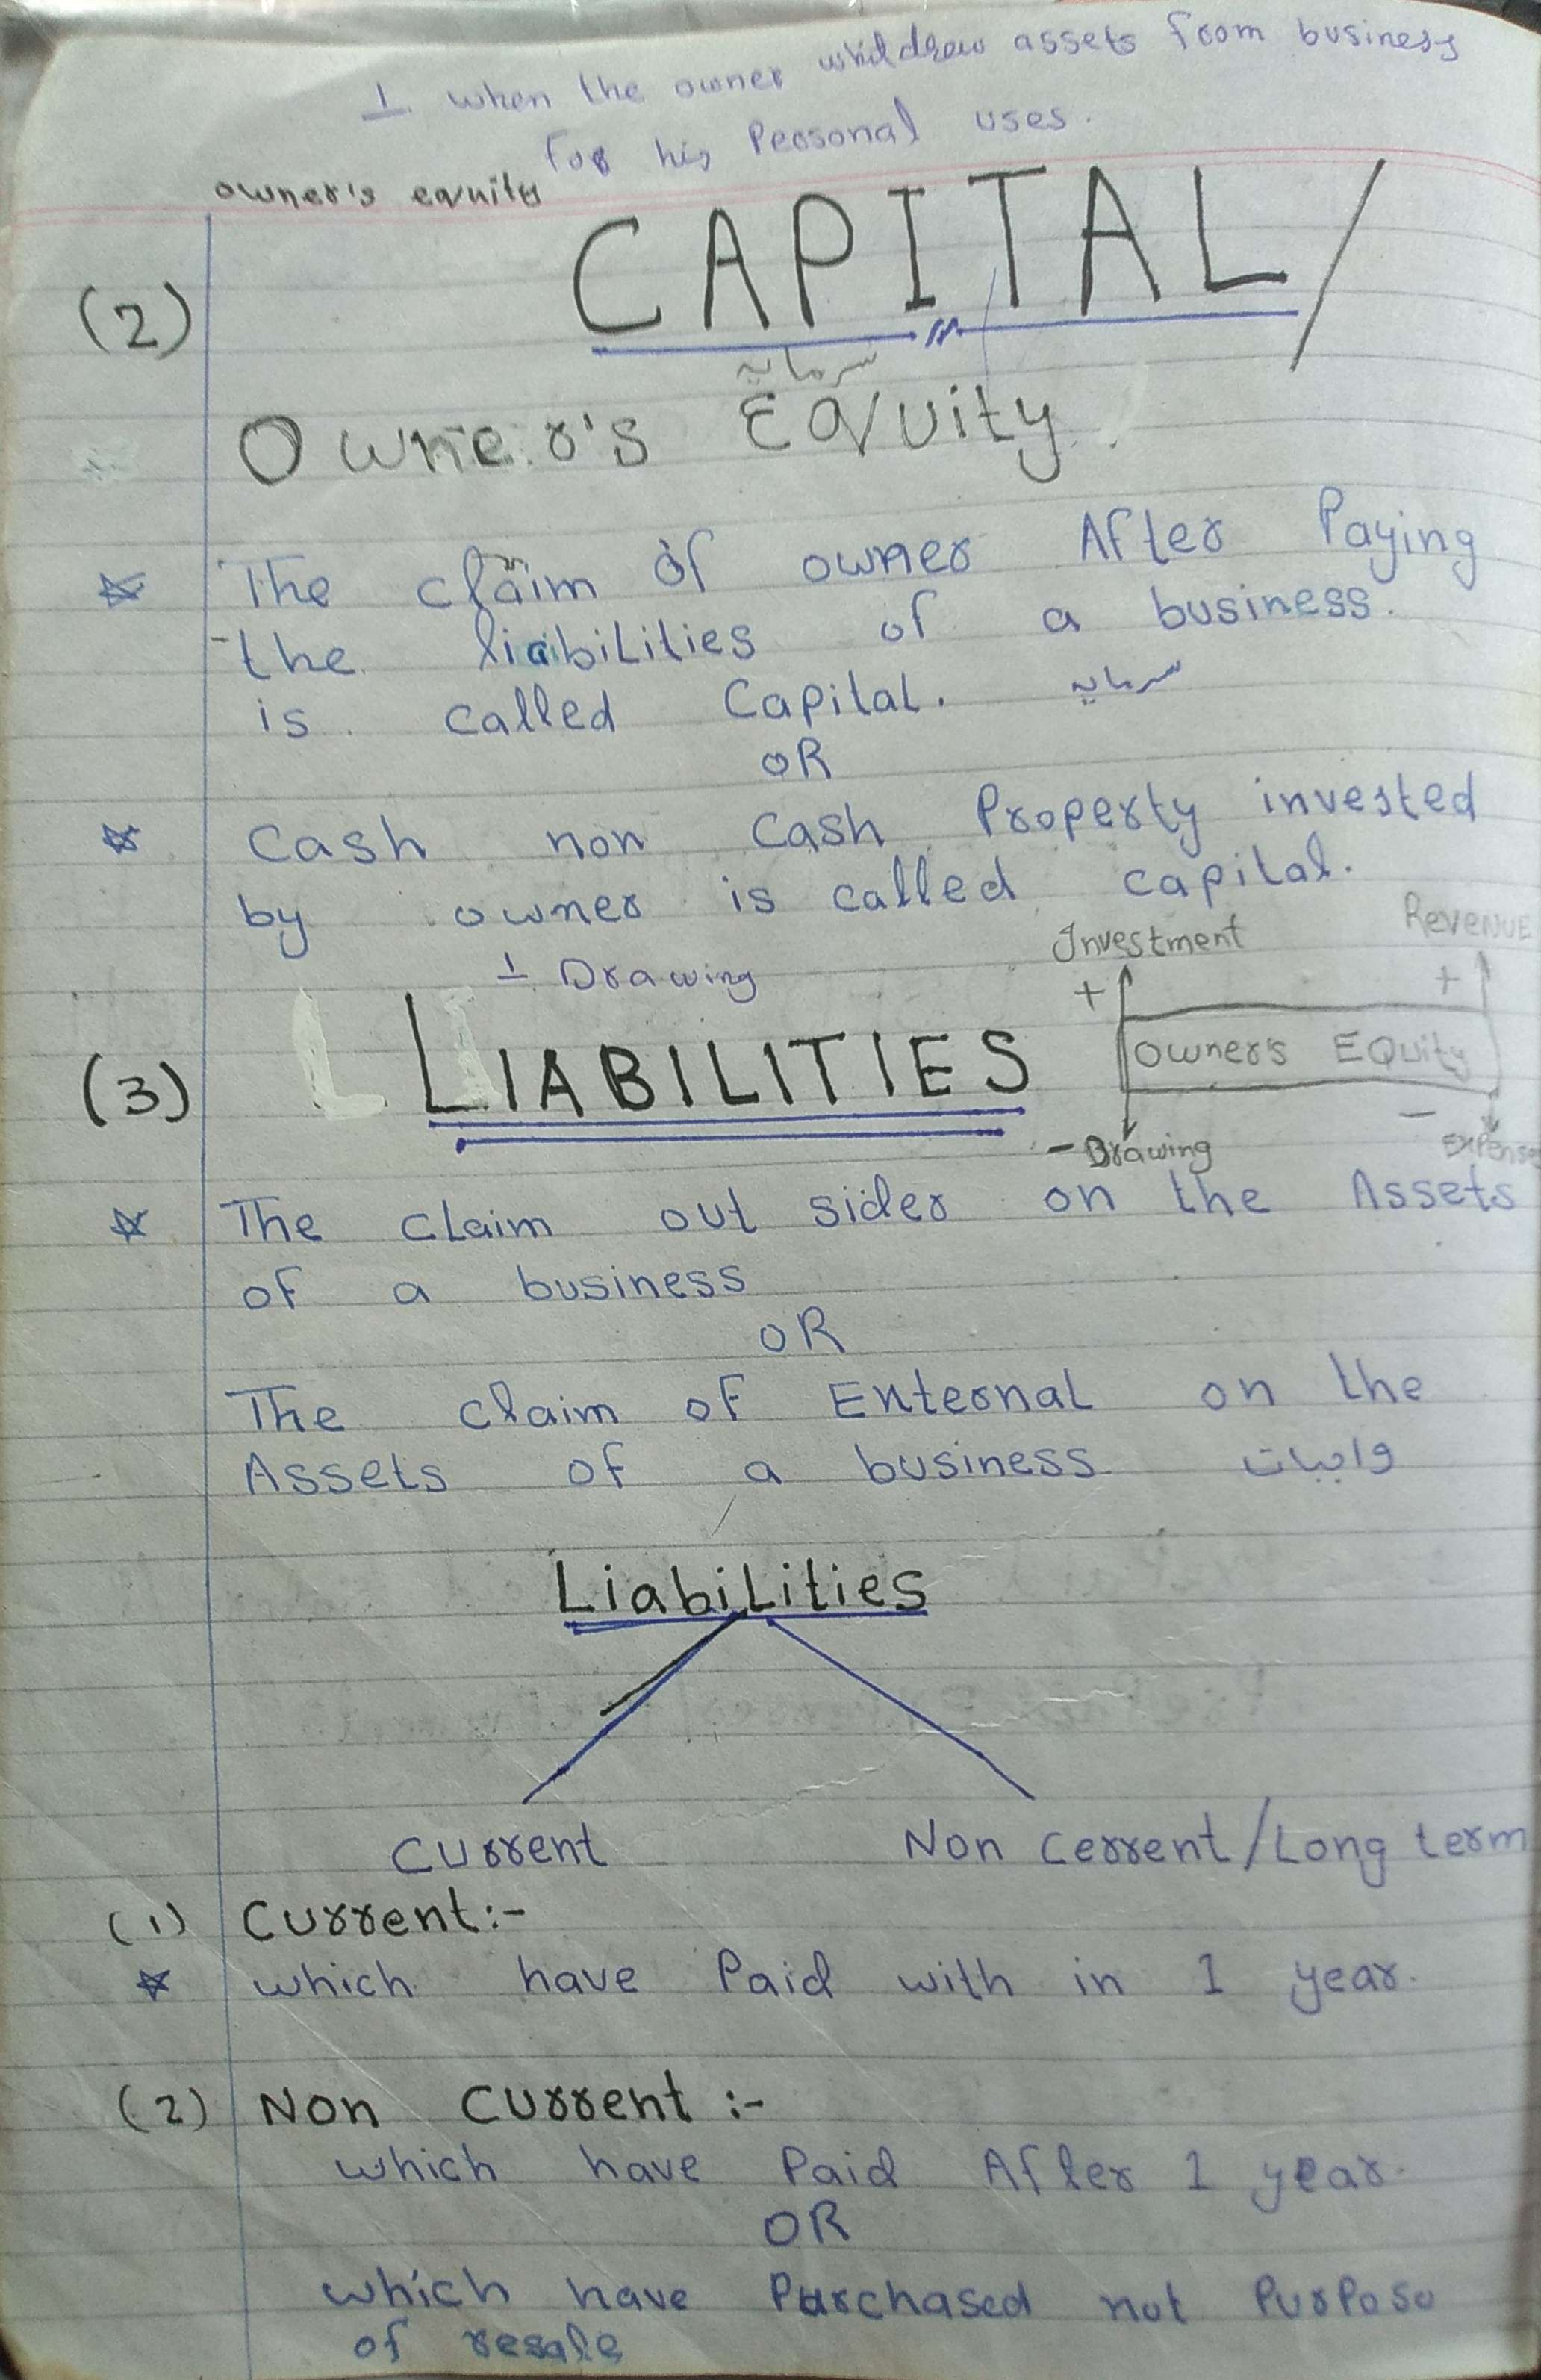 ⊥ when the owner whildrew assets from business
For his Personal uses.
owner's equity
(2) CAPITAL/
سرمایہ
Owner's EQuity
☆ The claim of owner After Paying
the liabilities of a business.
is called Capital. سرمایہ
OR
☆ Cash non Cash Property invested
by owner is called capital.
⊥ Drawing
Investment Revenue
+ +
(3) LIABILITIES
owner's EQuity
-
- Drawing Expenses
☆ The claim out sider on the Assets
of a business
OR
The claim of Enternal on the
Assets of a business واجبات
Liabilities
Current Non Cerrent/Long term
(1) Current:-
☆ which have Paid with in 1 year.
(2) Non Current :-
which have Paid After 1 year.
OR
which have Purchased not Purpose
of resale